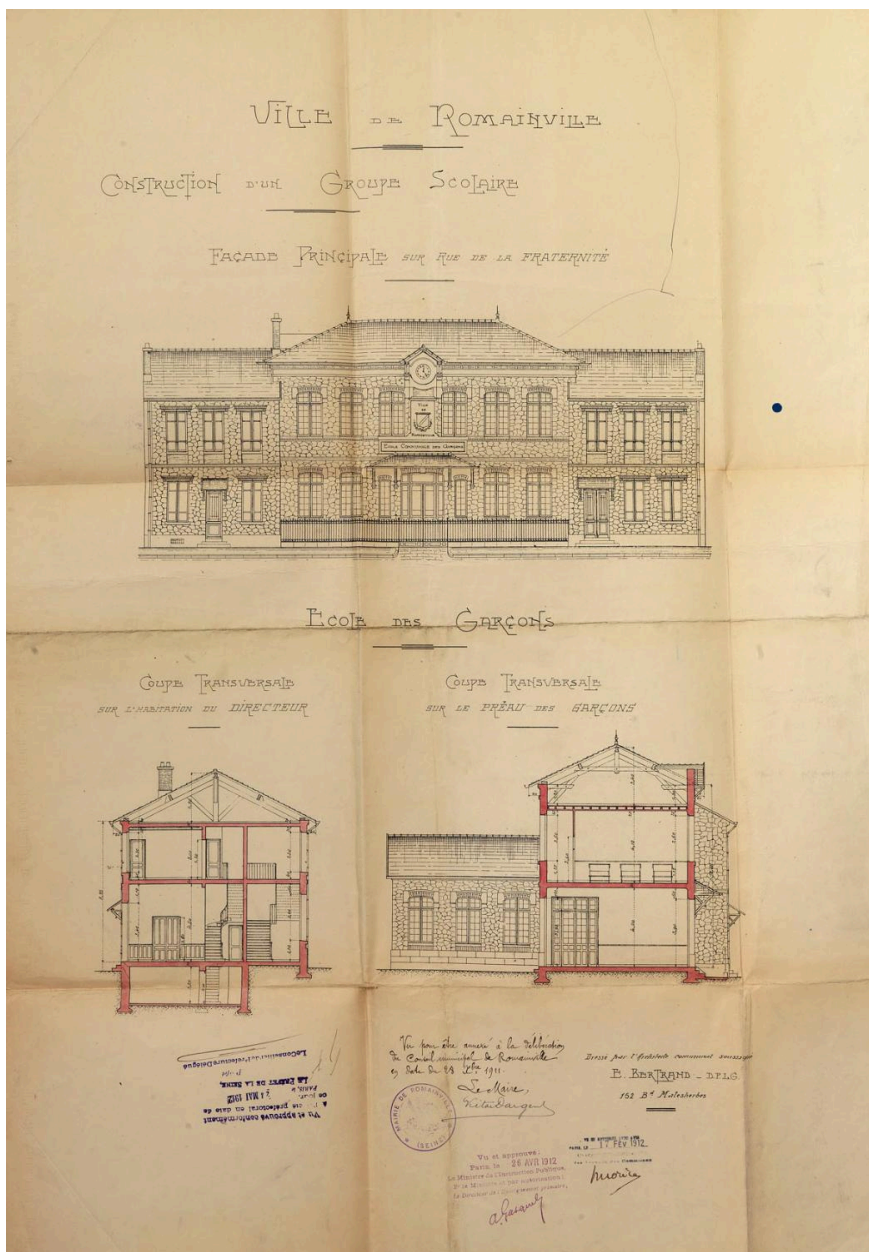 VILLE DE ROMAINVILLE
CONSTRUCTION D'UN GROUPE SCOLAIRE
FAÇADE PRINCIPALE SUR RUE DE LA FRATERNITÉ
VILLE
DE
ROMAINVILLE
ECOLE COMMUNALE DES GARÇONS
ECOLE DES GARÇONS
COUPE TRANSVERSALE
SUR L'HABITATION DU DIRECTEUR
COUPE TRANSVERSALE
SUR LE PRÉAU DES GARÇONS
Vu et approuvé conformément
à l' préfectoral en date de
ce jour.
PARIS, le 4 MAI 1912
LE PREFET DE LA SEINE,
Le Conseiller de Préfecture Délégué
Vu pour être annexé à la délibération
du Conseil municipal de Romainville
en date du 23 Xbre 1911.
Le Maire,
MAIRIE DE ROMAINVILLE
(SEINE)
Dressé par l'Architecte communal soussigné
E. BERTRAND - D.P.L.G.
152 Bd Malesherbes
Vu et approuvé:
Paris, le 26 AVR 1912
Le Ministre de l'Instruction Publique,
Le Directeur de l'Enseignement primaire,
PARIS, LE 17 FEV 1912.